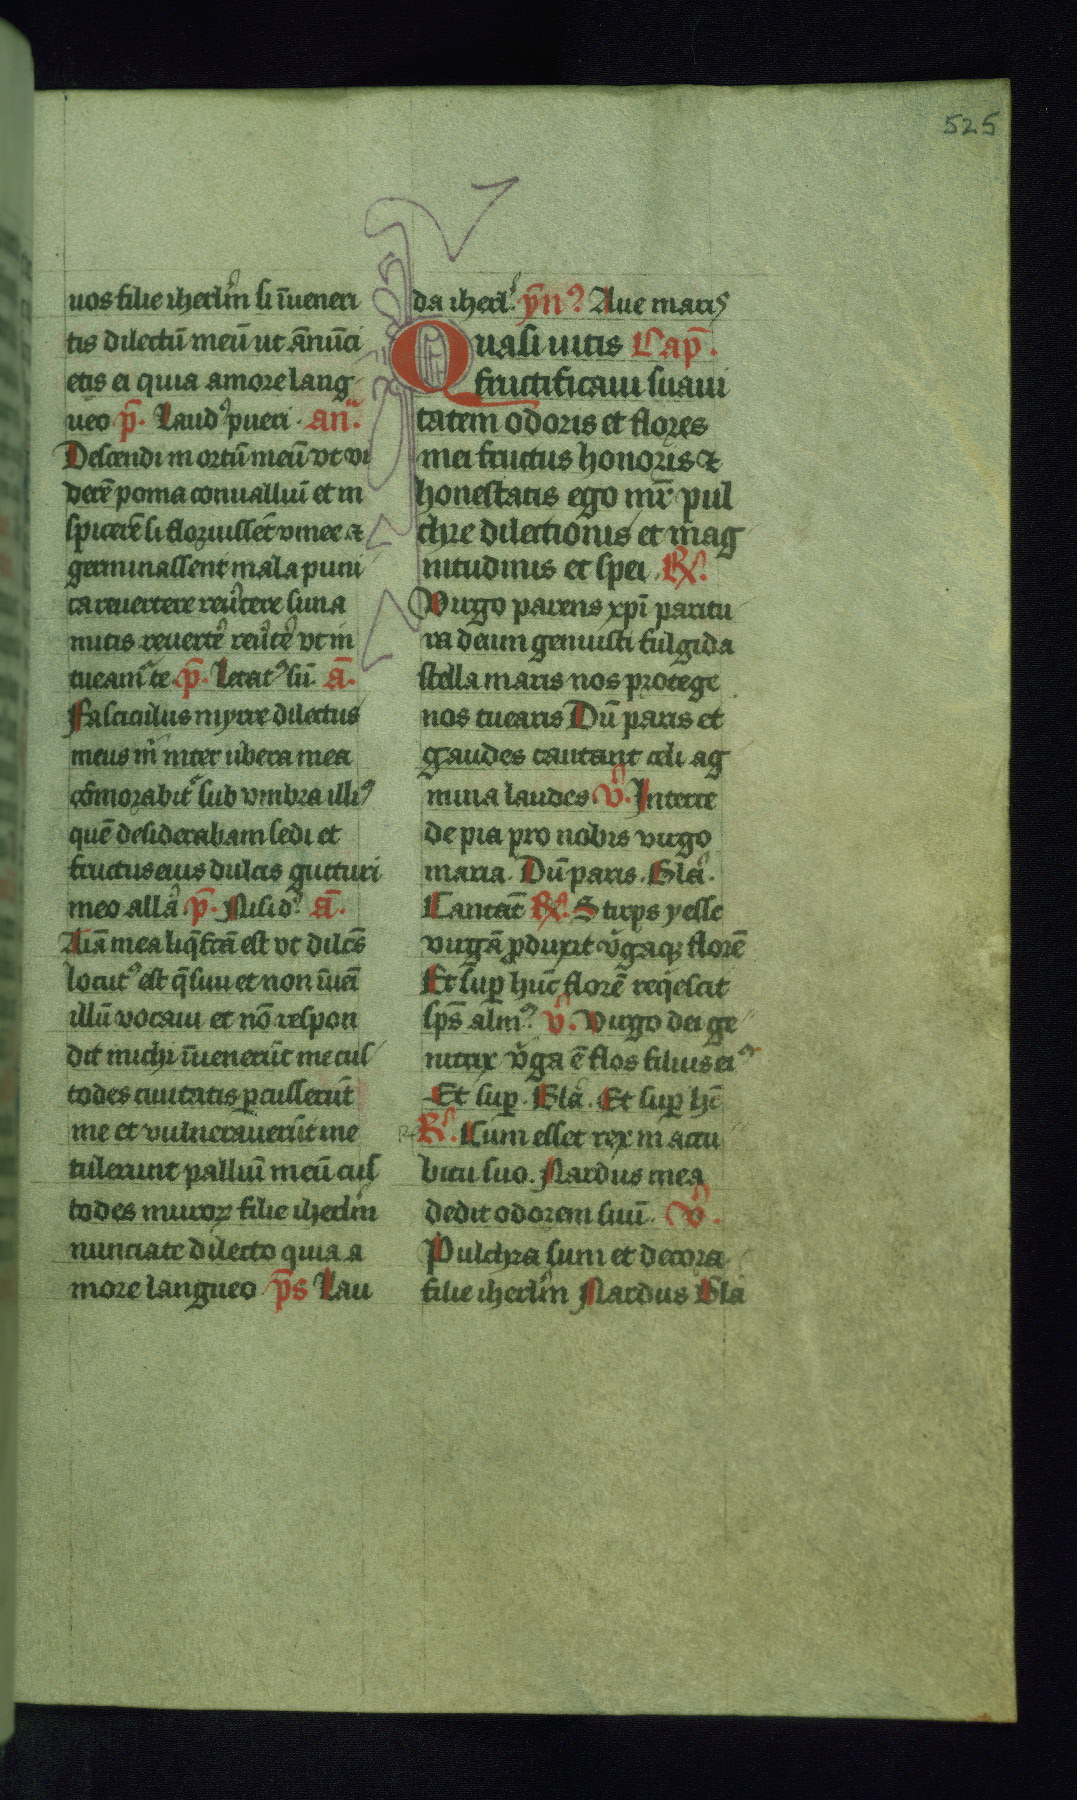 525
uos filie iherl̄m si īueneri
tis dilectū meū ut ān̄uci
etis ei quia amore lang
ueo p̄. Laudꝰ pueri. an̄.
Descendi in ortū meū vt vi
derē poma conualliū et in
spicerē si floruissēt vinee ⁊
germinassent mala puni
ca reuertere reūtere suna
mitis reuertē reūtē vt in
tueamꝰ te p̄. Letatꝰ sū ā.
Fasciculus myrre dilectus
meus m̄ inter ubera mea
cōmorabit᷑ sub vmbra illiꝰ
quē desiderabam sedi et
fructus eius dulcis gutturi
meo allā p̄. Nisi dꝰ ā.
Aīa mea liq̄fcā est vt dilc̄s
locutꝰ est q̄siui et non īuēi
illū vocaui et nō respon
dit michi īuenerūt me cus
todes ciuitatis ꝑcusserūt
me et vulnerauerūt me
tulerunt palliū meū cus
todes muroꝝ filie iherl̄m
nunciate dilecto quia a
more langueo p̄s Lau
da iherl̄. yn̄ꝰ Aue maris
Quasi uitis Cap̄.
fructificaui suaui
tatem odoris et flores
mei fructus honoris ⁊
honestatis ego mr̄ pul
chre dilectionis et mag
nitudinis et spei. R̸.
Virgo parens xp̄i paritu
ra deum genuisti fulgida
stella maris nos protege
nos tuearis Dū paris et
gaudes cantant celi ag
mina laudes v̄. Interce
de pia pro nobis virgo
maria. Dū paris. Glā.
Cantāt R̸. Stirps yesse
virgā ꝓduxit v̄gaqꝫ florē
Et suꝑ hūc florē reqͥescit
sp̄s almꝰ v̄. Virgo dei ge
nitrix v̄ga ē flos filius eiꝰ
Et suꝑ. Glā. Et suꝑ hc̄
R̸. Cum esset rex in accu
bitu suo. Nardus mea
dedit odorem suū. v̄.
Pulchra sum et decora
filie iherl̄m Nardus Gla